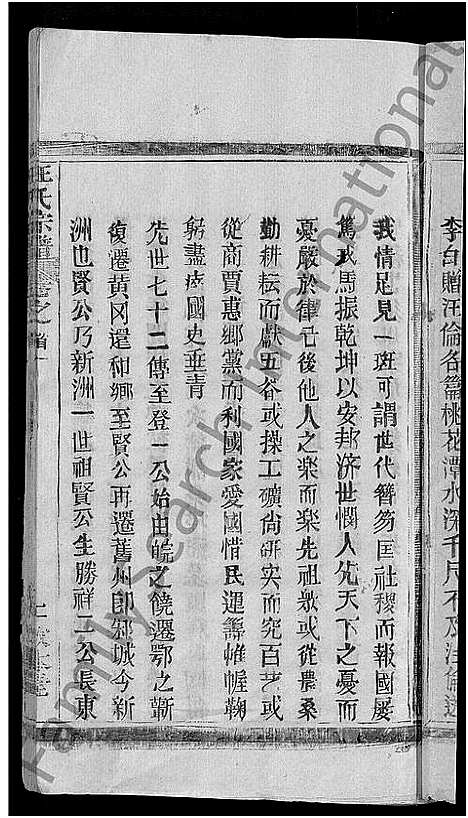 李白贈汪倫名篇桃花潭水深千尺不及汪倫送
我情足見一斑可謂世代簪笏匡社稷而報國屡
駕戎馬振乾坤以安邦济世憫人先天下之憂而
憂嚴於律己後他人之楽而楽先祖衆或從農桑
勤耕耘而献五谷或操工礦尚研实而究百艺或
從商賈惠郷黨而利國家愛國惜民運籌帷幄鞠
躬盡瘁國史垂青
先世七十二傳至登一公始由皖之饒遷鄂之蘄
復遷黄冈還和鄉至賢公再遷舊州即邾城今新
洲也賢公乃新洲一世祖賢公生勝祥二公長東
汪氏宗譜
卷之首一
FamilySearch International